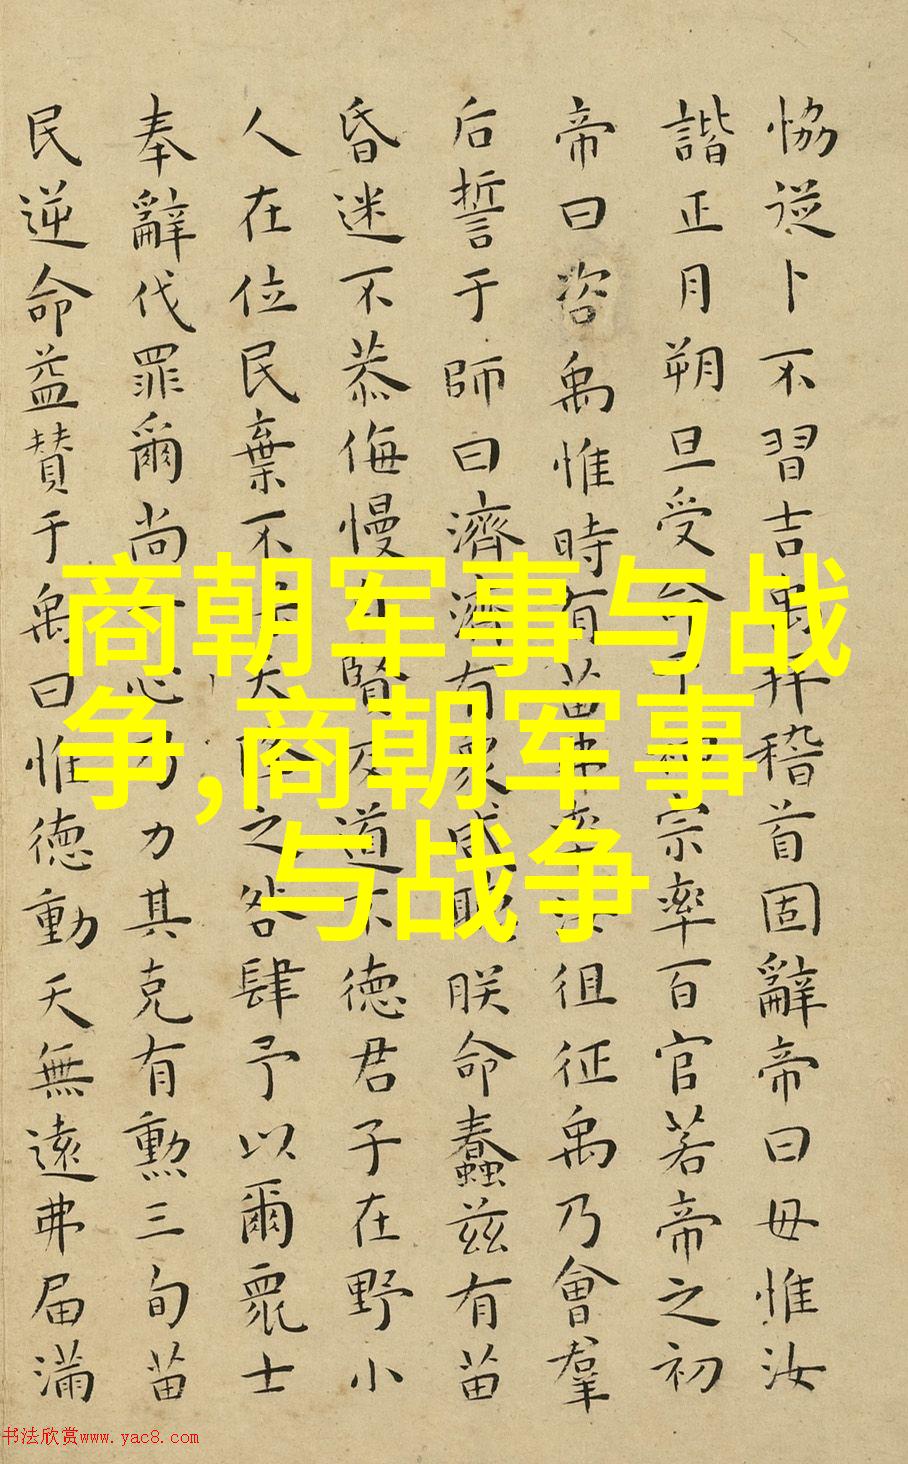 恊從卜不習吉禹拜稽首固辭帝曰毋惟汝
諧正月朔旦受命于神宗率百官若帝之初
帝曰咨禹惟時有苗弗率汝徂征禹乃會羣
后誓于師曰濟濟有衆咸聽朕命蠢兹有苗
昏迷不恭侮慢自賢反道德君子在野小
人在位民棄不天降之咎肆予以爾眾士
奉辭伐罪爾尚一心乃力其克有勳三旬苗
民逆命益贊于禹曰惟德動天無遠弗届滿
商朝军事与战
争,商朝军事
与战争
书法欣赏www.yac8.com